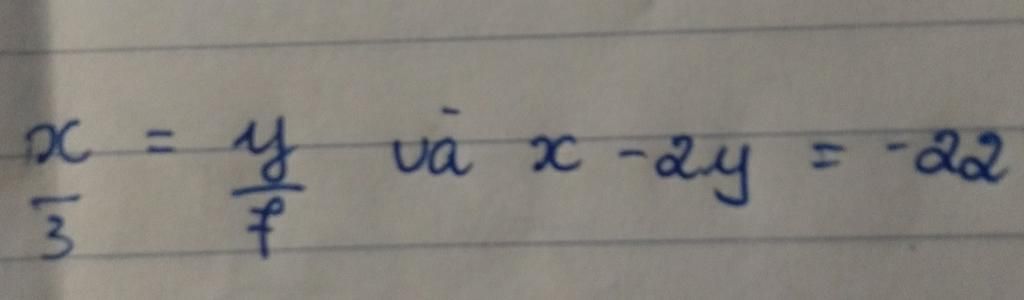 x/3 = y/7 và x - 2y = -22